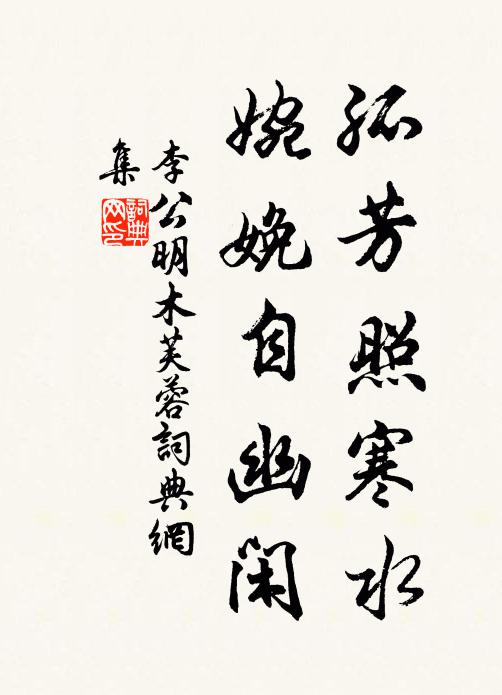 孤芳照寒水
婉娩自幽閑
李公明木芙蓉詞典網
集
詞典
网印